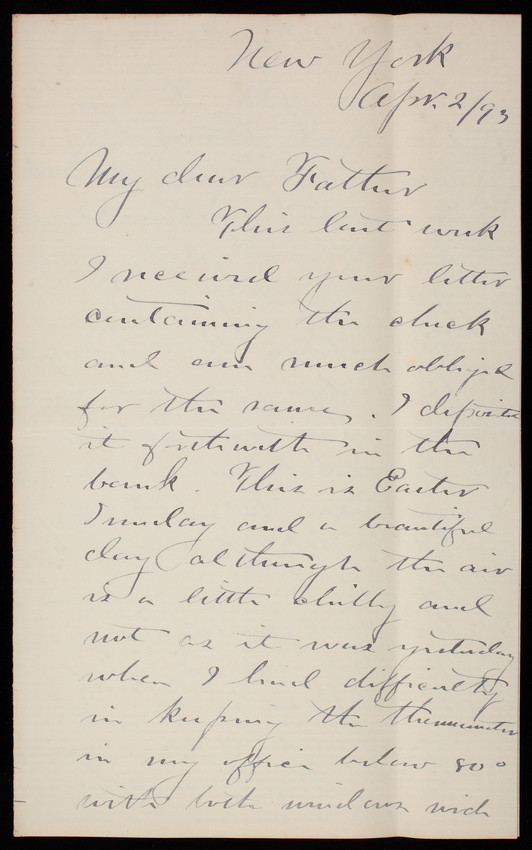 New York
Apr. 2/93
My dear Father
This last week
I received your letter
containing the check
and am much obliged
for the same. I deposited
it forthwith in the
bank. This is Easter
Sunday and a beautiful
day although the air
is a little chilly and
not as it was yesterday
when I had difficulty
in keeping the thermometer
in my office below 80°
with both windows wide